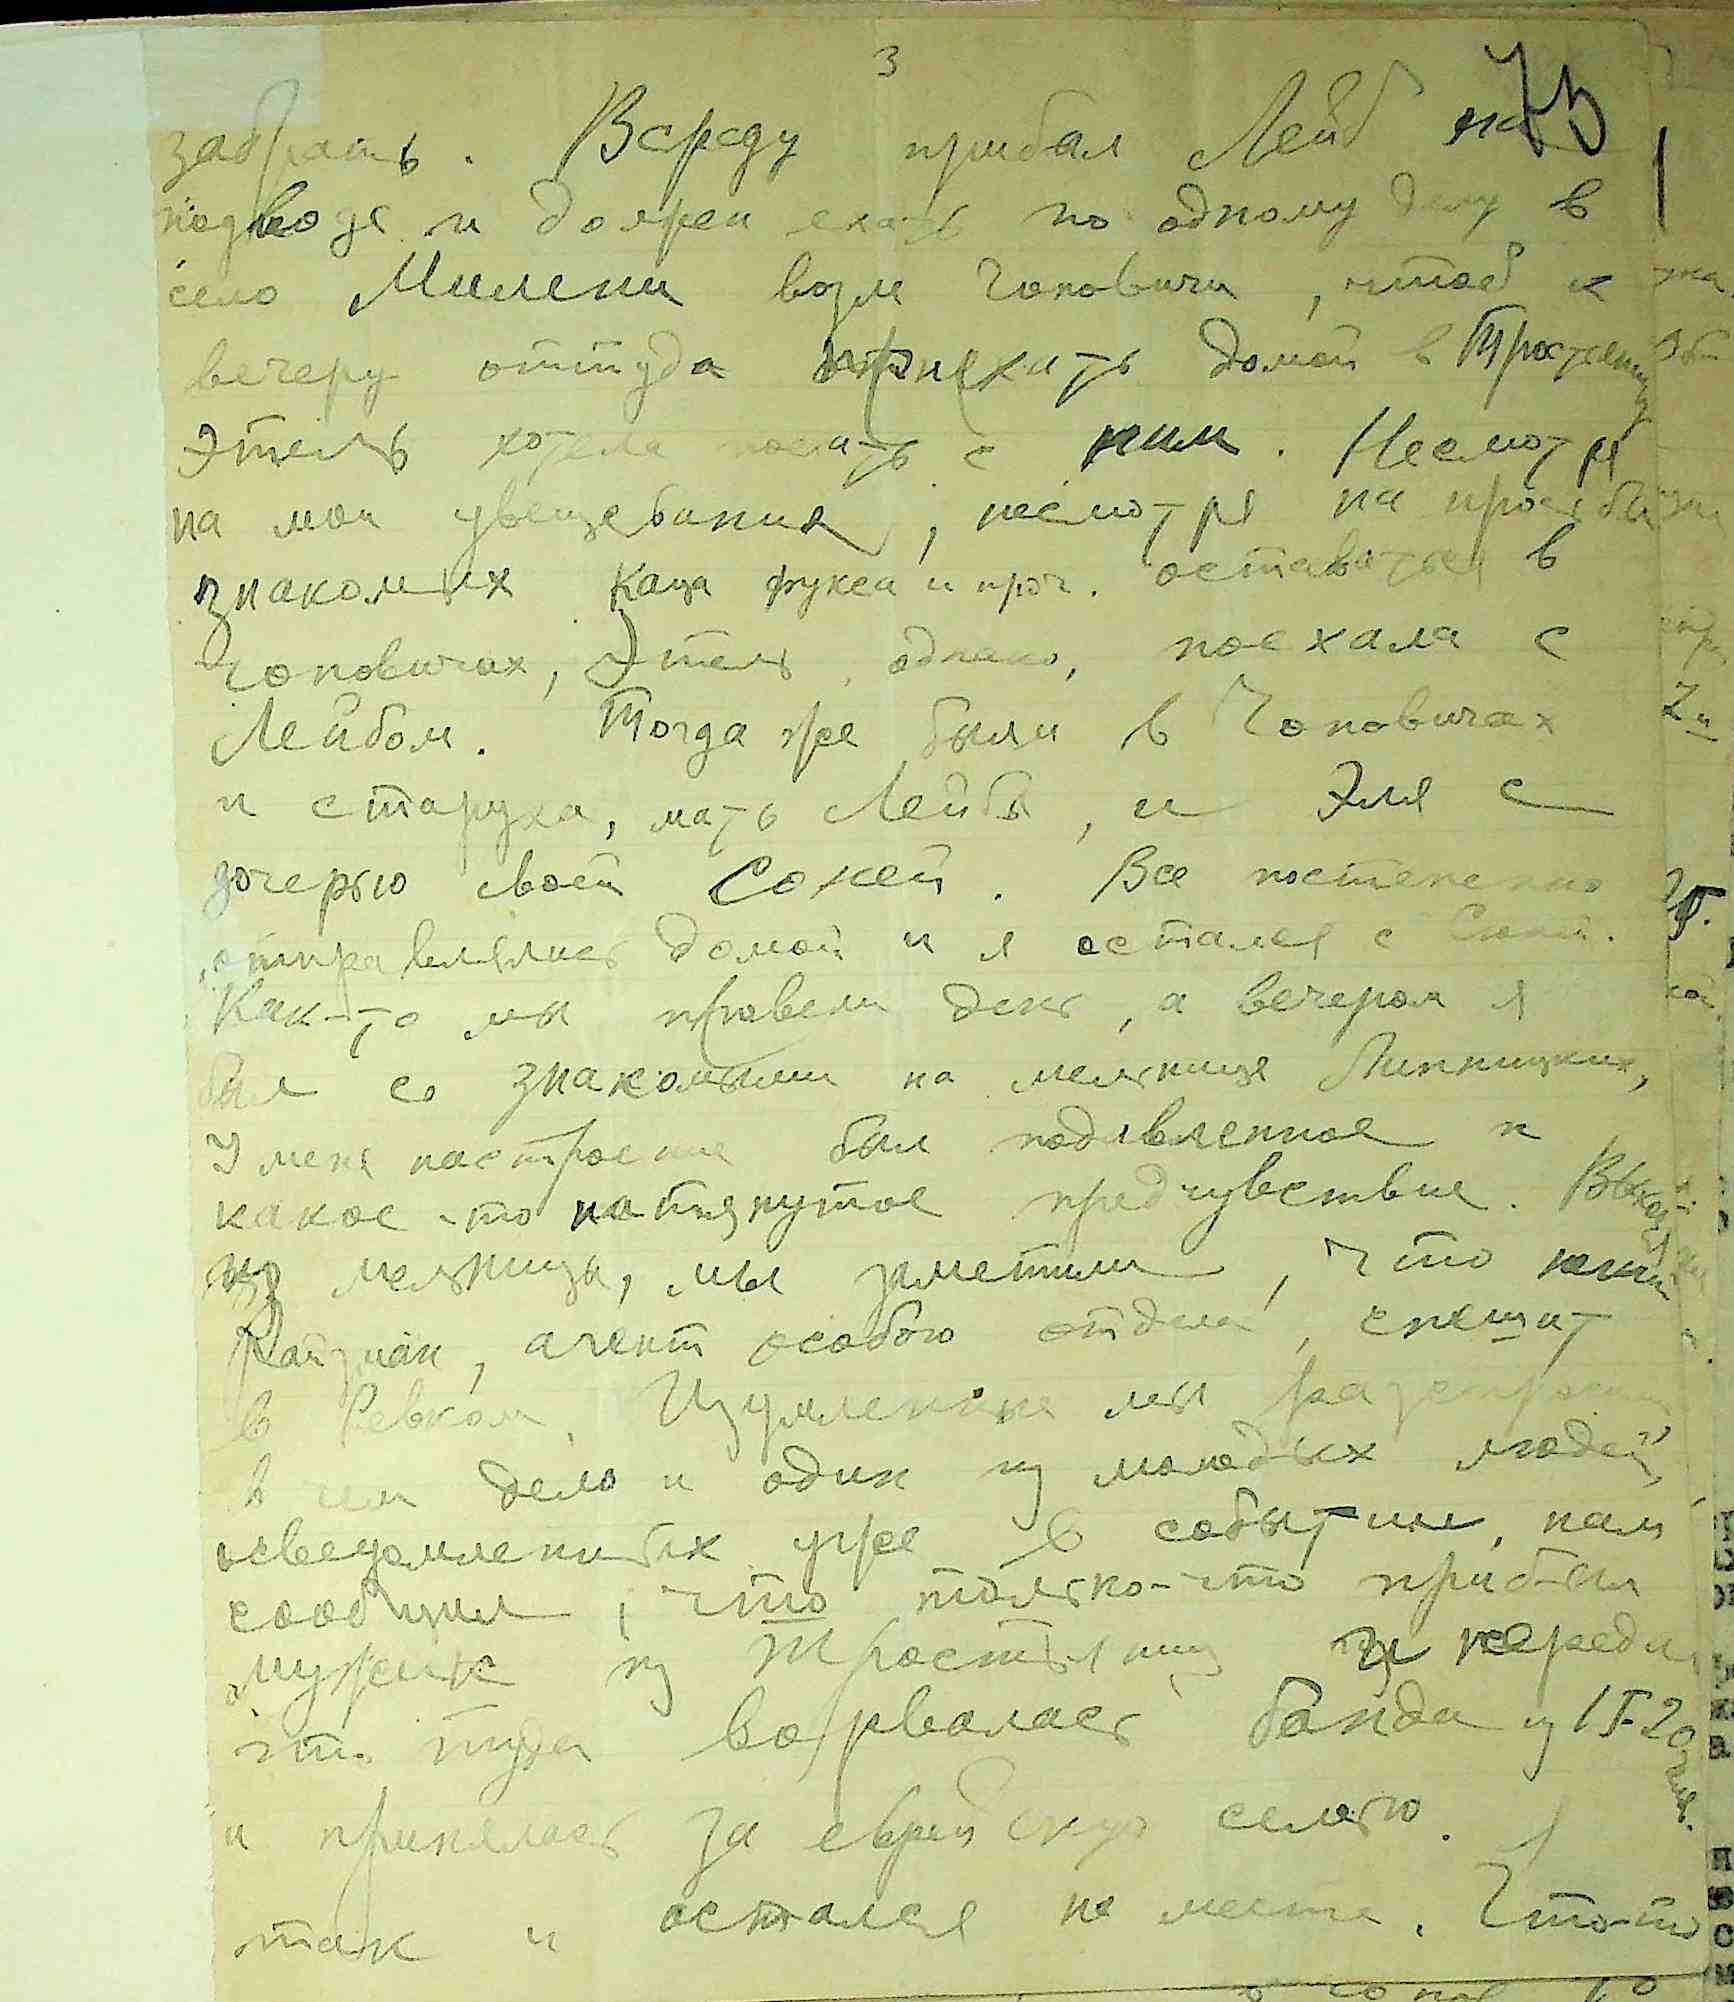 3
75
забрать. В среду прибыл Лейб на
подводе и должен ехать по одному делу в
село Милени возле Чоповичи, чтоб к
вечеру оттуда приехать домой в Тростяницу
Этель хотела поехать с ним. Несмотря
на мои увещевания, несмотря на просьбы
знакомых Каца Фукса и проч. оставаться в
Чоповичах, Этель, однако, поехала с
Лейбом. Тогда же были в Чоповичах
и старуха, мать Лейбы, и Эля с
дочерью своей Соней. Все постепенно
отправлялись домой и я остался с
Как-то мы провели день, а вечером я
был со знакомыми на мельнице Липницких,
У меня настроение был подавленное и
какое-то натянутое предчувствие. Выходя
из мельницы, мы заметили, что
Райзман, агент особого отдела, спешит
в Ревком. Изумленные мы
в чем дело и один из молодых людей,
осведомленных уже в событии, нам
сообщил, что только-что прибыл
мужик из Тростяницы и передал
что туда ворвалась банда из 15-20 чел.
и принялась за еврейскую семью. Я
так и остался на месте. Что-то